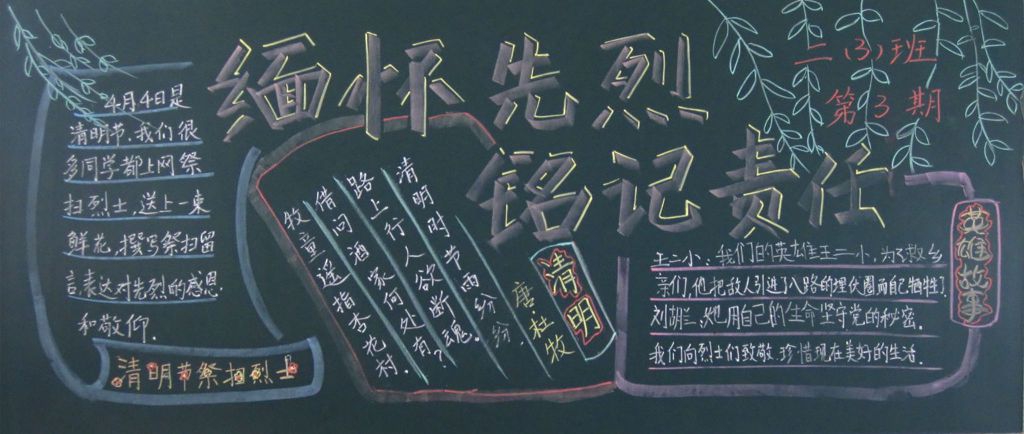 缅怀先烈
铭记责任
二(3)班
第3期
4月4日是
清明节,我们很
多同学都上网祭
扫烈士,送上一束
鲜花,撰写祭扫留
言表达对先烈的感恩
和敬仰.
清明节祭扫烈士
清明
唐 杜牧
清明时节雨纷纷,
路上行人欲断魂.
借问酒家何处有?
牧童遥指杏花村.
英雄故事
王二小:我们的英雄王二小,为了救乡
亲们,他把敌人引进了八路的埋伏圈而自己牺牲了.
刘胡兰,她用自己的生命坚守党的秘密.
我们向烈士们致敬,珍惜现在美好的生活.